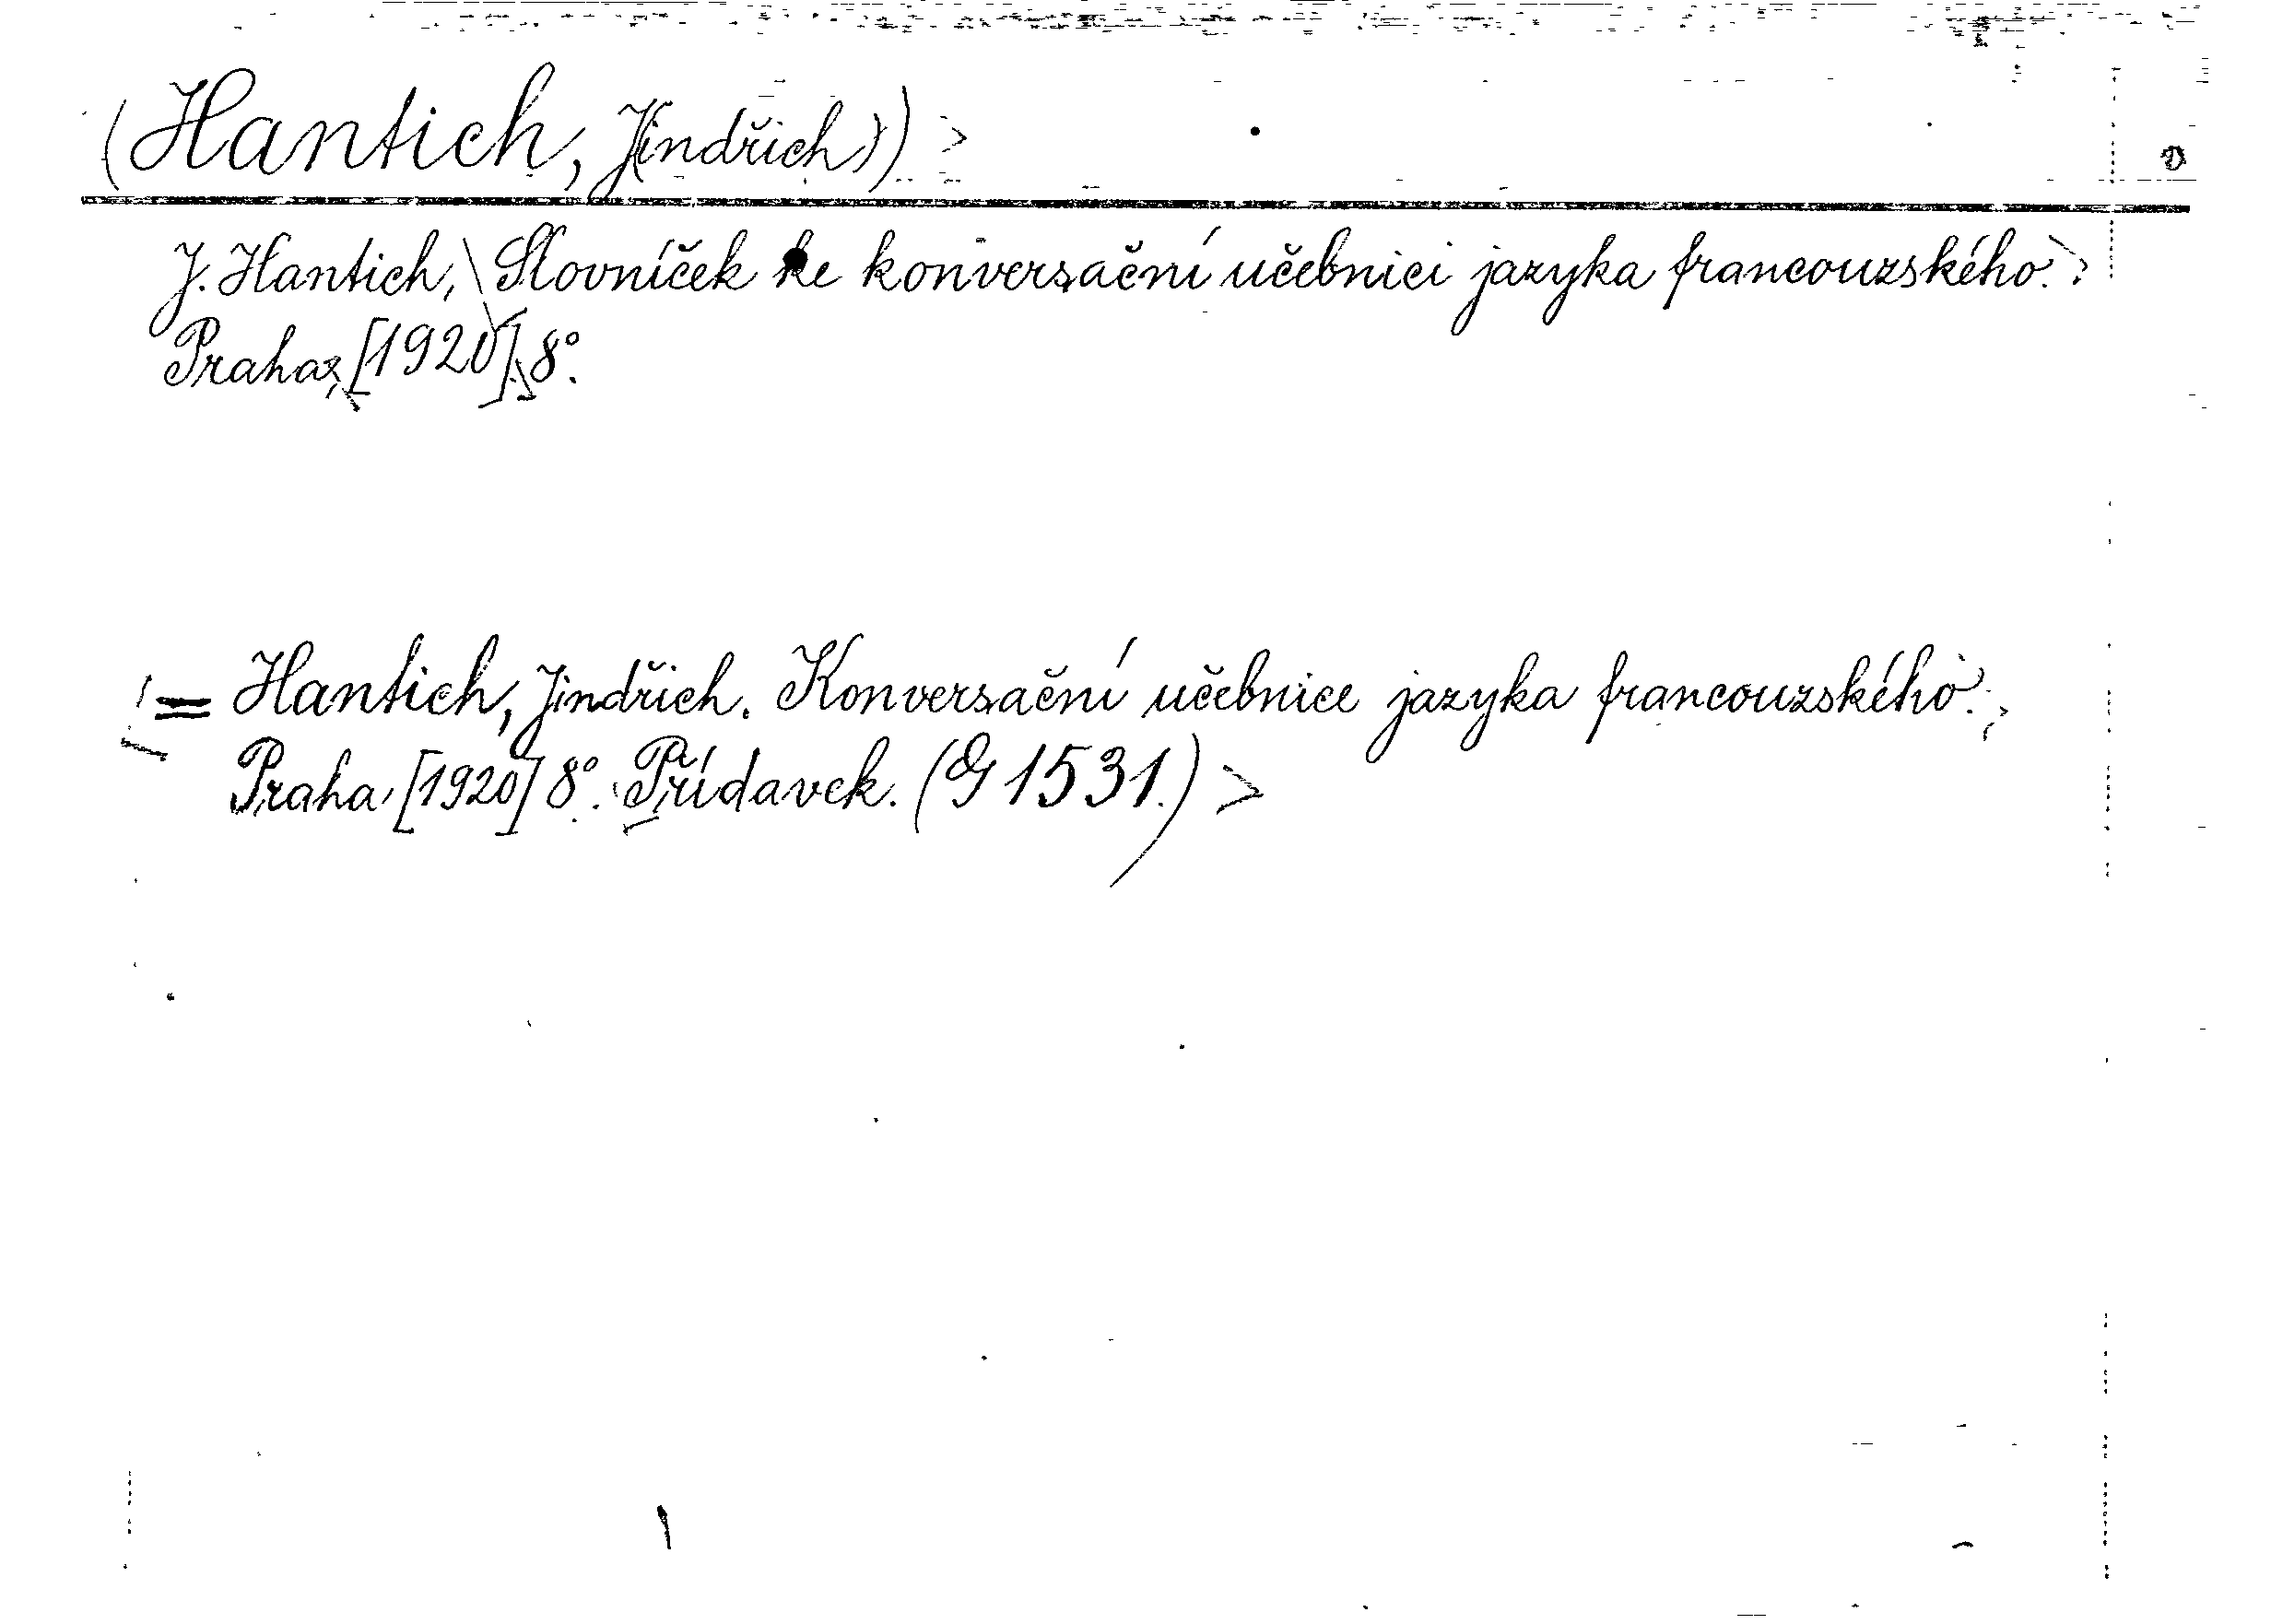 (Hantich, J(indřich))
J. Hantich, Slovníček ke konversační učebnici jazyka francouzského.
Praha, [1920]. 8°.
= Hantich, Jindřich. Konversační učebnice jazyka francouzského.
Praha, [1920] 8°. Přídavek. (G 1531.)